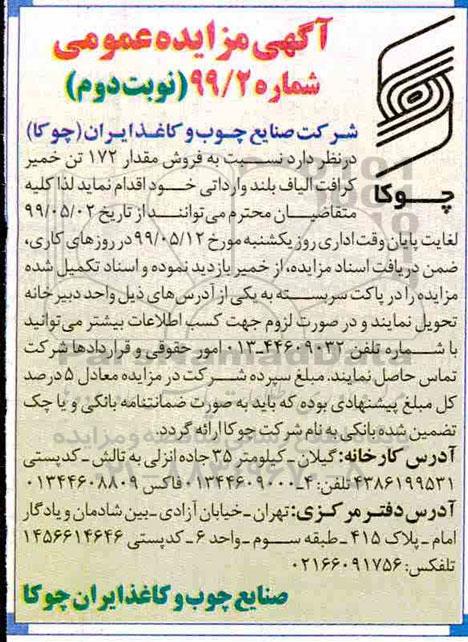 آگهی مزایده عمومی
شماره ۹۹/۲ (نوبت دوم)
چوکا
شرکت صنایع چوب و کاغذ ایران (چوکا)
در نظر دارد نسبت به فروش مقدار ۱۷۲ تن خمیر
کرافت الیاف بلند وارداتی خود اقدام نماید لذا کلیه
متقاضیان محترم می‌توانند از تاریخ ۹۹/۰۵/۰۲
لغایت پایان وقت اداری روز یکشنبه مورخ ۹۹/۰۵/۱۲ در روزهای کاری،
ضمن دریافت اسناد مزایده، از خمیر بازدید نموده و اسناد تکمیل شده
مزایده را در پاکت سربسته به یکی از آدرس‌های ذیل واحد دبیرخانه
تحویل نمایند و در صورت لزوم جهت کسب اطلاعات بیشتر می‌توانید
با شماره تلفن ۴۴۶۰۹۰۳۲-۰۱۳ امور حقوقی و قراردادها شرکت
تماس حاصل نمایند. مبلغ سپرده شرکت در مزایده معادل ۵ درصد
کل مبلغ پیشنهادی بوده که باید به صورت ضمانتنامه بانکی و یا چک
تضمین شده بانکی به نام شرکت چوکا ارائه گردد.
آدرس کارخانه: گیلان - کیلومتر ۳۵ جاده انزلی به تالش - کدپستی
۴۳۸۶۱۹۹۵۳۱ تلفن: ۴-۰۱۳۴۴۶۰۹۰۰۰ فاکس ۰۱۳۴۴۶۰۸۸۰۹
آدرس دفتر مرکزی: تهران - خیابان آزادی - بین شادمان و یادگار
امام - پلاک ۴۱۵ - طبقه سوم - واحد ۶ - کدپستی ۱۴۵۶۶۱۴۶۴۶
تلفکس: ۰۲۱۶۶۰۹۱۷۵۶
صنایع چوب و کاغذ ایران چوکا